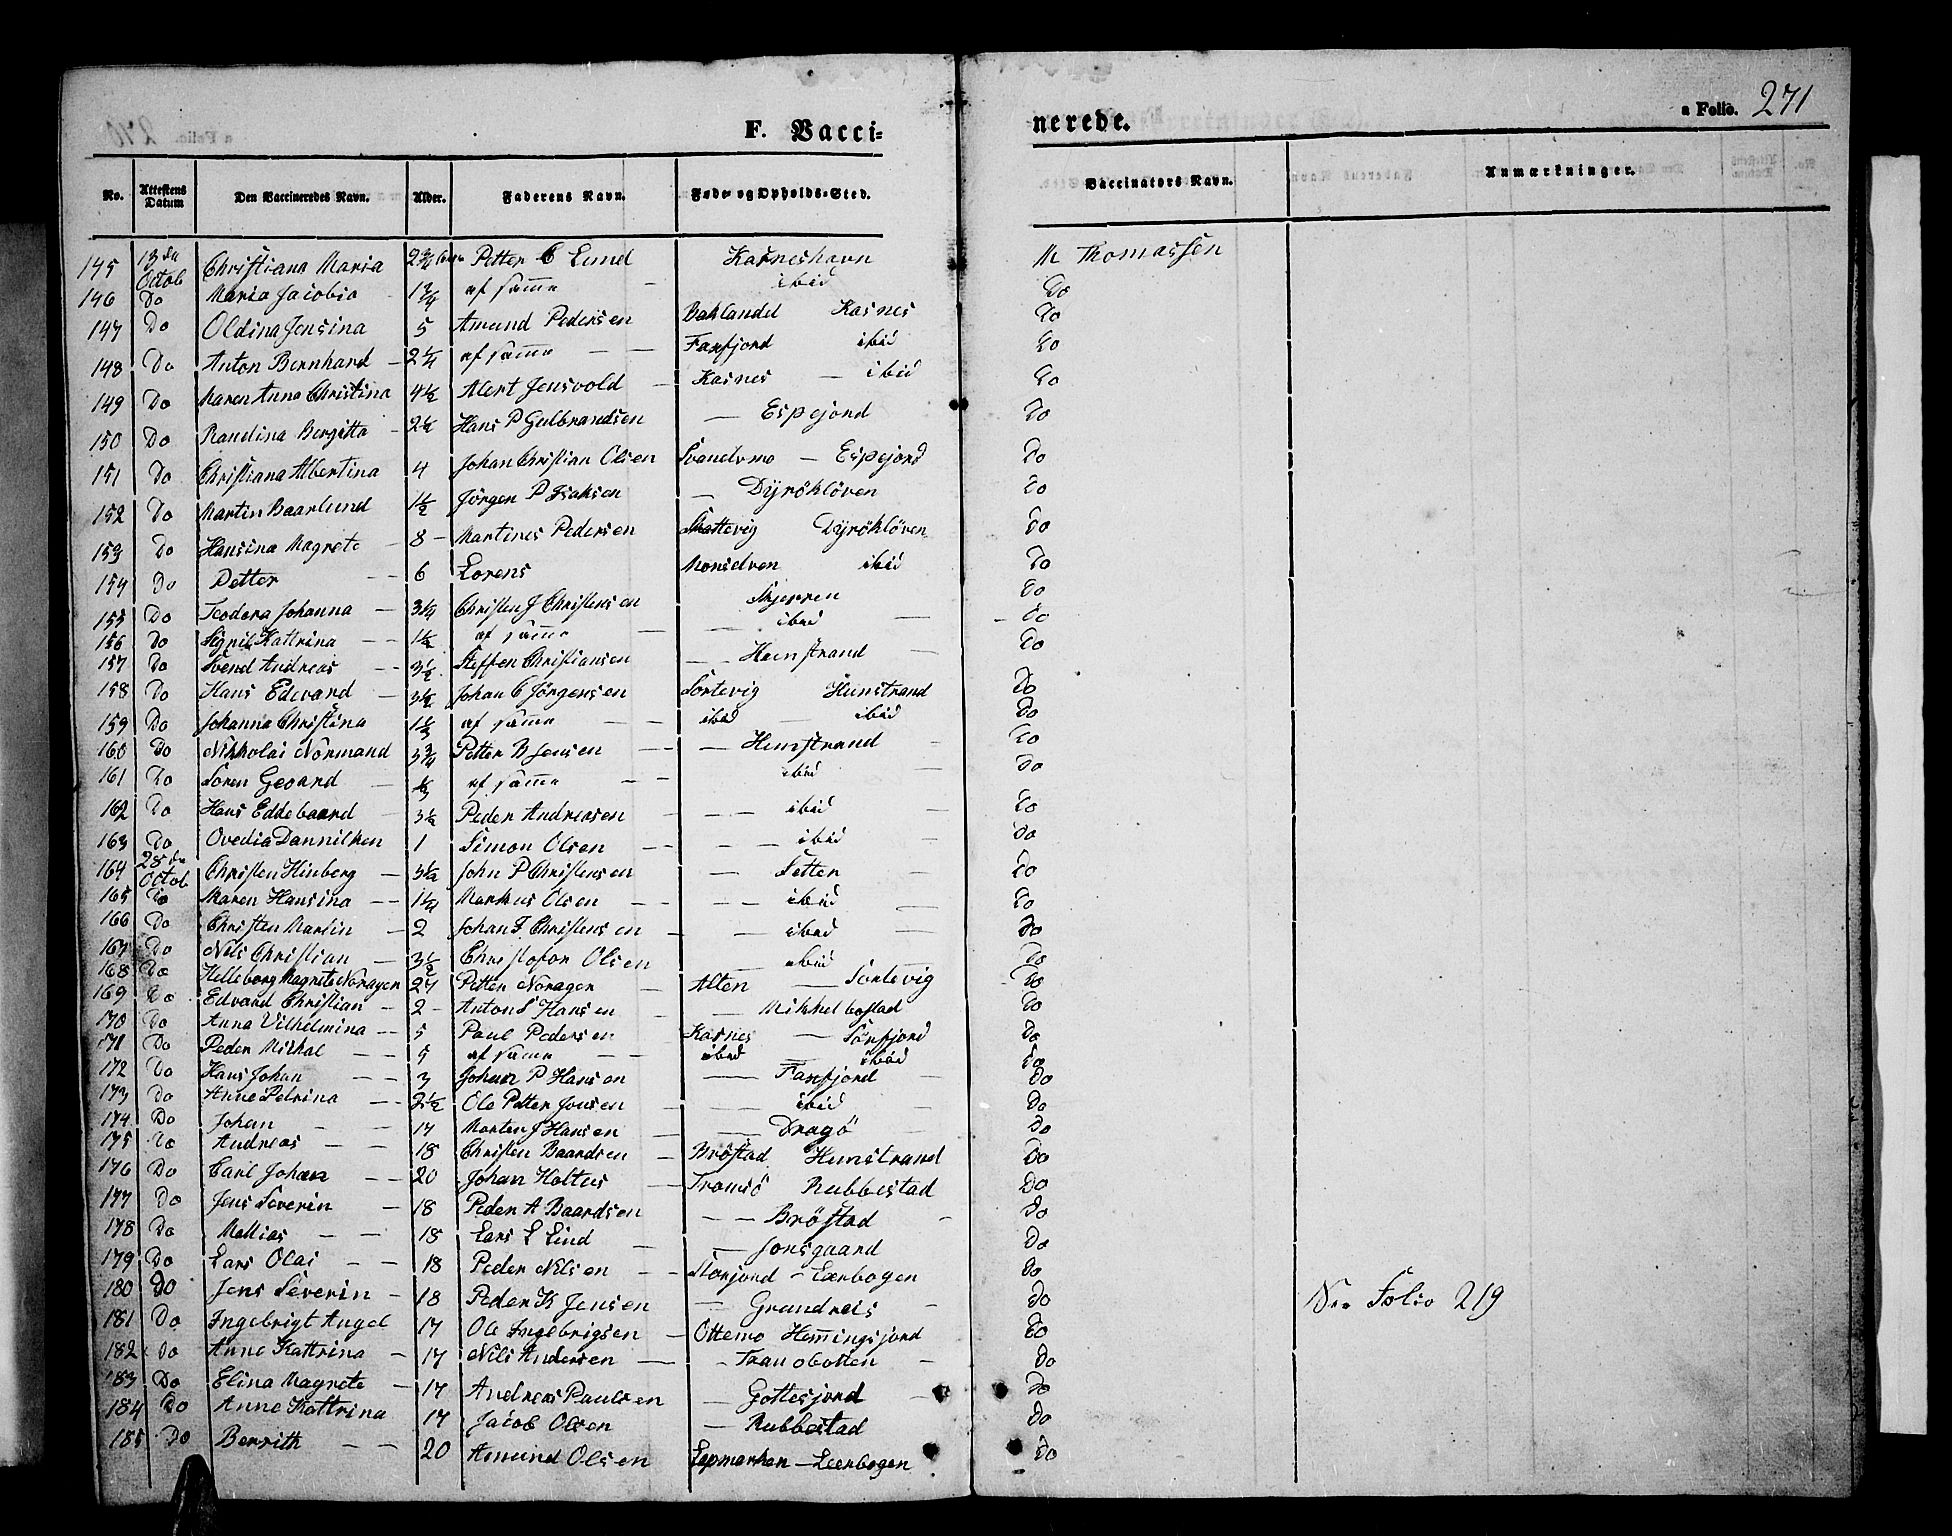 F. Vacci-
nerede.
a Folio. 271
No. Attestens Datum Den Vaccineredes Navn. Alder. Faderens Navn. Føde- og Opholds-Sted. Vaccinators Navn. Anmærkninger.
145 13de Octob Christiana Maria 2 3/4 Petter C Lund Kasneshavn M Thomassen
146 Do Maria Jacobia 1 3/4 af samme ibid Do
147 Do Oldina Jensina 5 Amund Pedersen Baklandet Kasnes Do
148 Do Anton Bernhard 2 1/4 af samme Faxfjord ibid Do
149 Do Maren Anna Christina 4 1/2 Alert Jensvold Kasnes ibid Do
150 Do Randina Bergitta 2 1/2 Hans P Gulbrandsen Espejord Do
151 Do Christiana Albertina 4 Johan Christian Olsen Svandemo Espejord Do
152 Do Martin Baarlund 1 1/2 Jörgen P Isaksen Dyröklöven Do
153 Do Hansina Magrete 8 Martines Pedersen Skattevig Dyröklöven Do
154 Do Petter 6 Lorens Monselven ibid Do
155 Do Teodora Johanna 3 1/4 Christen J Christensen Skjerren Do
156 Do Signil Kattrina 1 1/2 af samme ibid Do
157 Do Svend Andreas 3 1/2 Steffen Christiansen Hemstrand Do
158 Do Hans Edvard 3 1/2 Johan C Jörgensen Sortevig Hemstrand Do
159 Do Johanna Christina 1 1/2 af samme ibid ibid Do
160 Do Nikkolai Normand 3 3/4 Petter B Jensen Hemstrand Do
161 Do Soren Geoard 1/2 af samme ibid Do
162 Do Hans Eddebaard 3 1/2 Peder Andreasen ibid Do
163 Do Ovedia Dannilken 1 Simon Olsen ibid Do
164 28de Octob Christen Hinberg 3 1/2 John P Christensen Tetten Do
165 Do Maren Hansina 1 1/2 Markus Olsen ibid Do
166 Do Christen Martin 2 Johan F Christensen ibid Do
167 Do Nils Christian 3 1/2 Christofor Olsen ibid Do
168 Do Helleborg Magrete Noragen 2 1/4 Petter Noragen Alten Sortevig Do
169 Do Edvard Christian 2 Anton S Hansen Mikkelbostad Do
170 Do Anna Vilhelmina 5 Paul Pedersen Kasnes Sörfjord Do
171 Do Peder Mickal 5 af samme ibid ibid Do
172 Do Hans Johan 3 Johan P Hansen Faxfjord Do
173 Do Anne Petrina 2 1/2 Ole Petter Jonsen ibid Do
174 Do Johan 17 Morten J Hansen Dragö Do
175 Do Andreas 18 Christen Baardsen Bröstad Hemstrand Do
176 Do Carl Johan 20 Johan Holteus Tromsö Rubbestad Do
177 Do Jens Severin 18 Peder A Baardsen Bröstad Do
178 Do Mattias 18 Lars L Lind Jonsgaard Do
179 Do Lars Olai 18 Peder Nilsen Storjord Leerbogen Do
180 Do Jens Severin 18 Peder K Jensen Grundreis Do Vid Folio 219
181 Do Ingebrigt Angel 17 Ole Ingebrigsen Ottemo Hemingsjord Do
182 Do Anne Kattrina 17 Nils Andersen Tranobotten Do
183 Do Elina Magrete 17 Andreas Paulsen Gottesjord Do
184 Do Anne Kattrina 17 Jacob Olsen Rubbestad Do
185 Do Berrith 20 Asmund Olsen Lapmarken Leerbogen Do